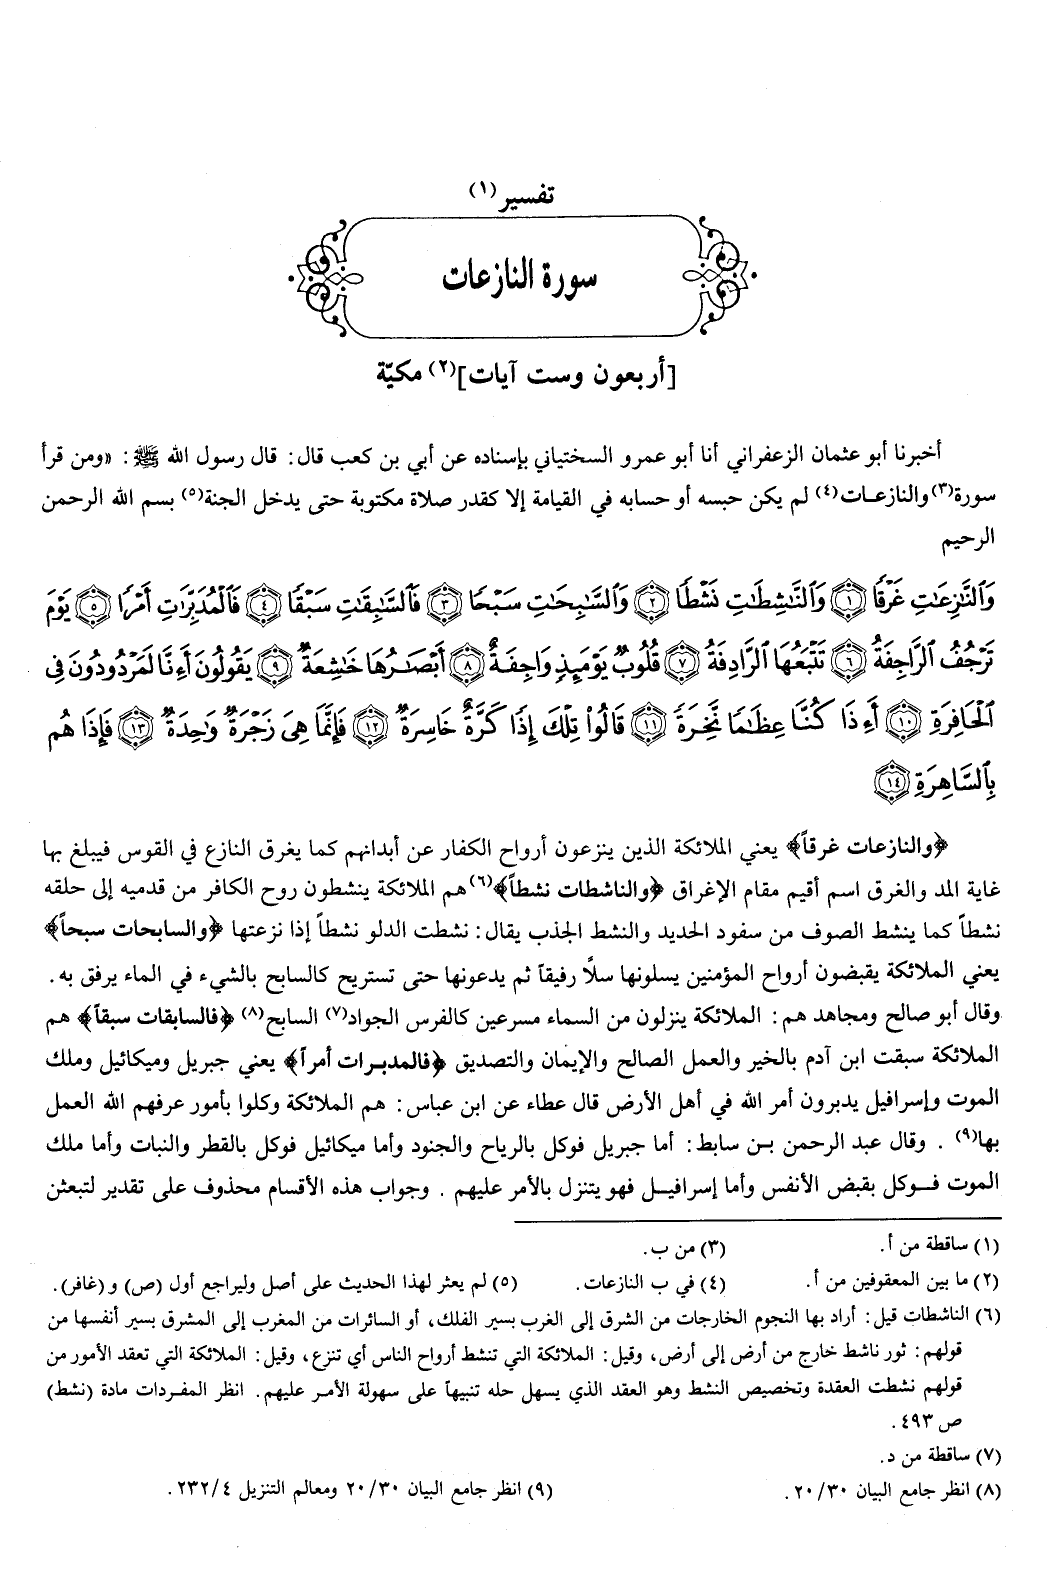 تفسير(١)
سورة النازعات
[أربعون وست آيات](٢) مكيّة
أخبرنا أبو عثمان الزعفراني أنا أبو عمرو السختياني بإسناده عن أبي بن كعب قال: قال رسول الله ﷺ: «ومن قرأ
سورة(٣) والنازعـات(٤) لم يكن حبسه أو حسابه في القيامة إلا كقدر صلاة مكتوبة حتى يدخل الجنة(٥) بسم الله الرحمن
الرحيم
وَٱلنَّٰزِعَٰتِ غَرْقًا ١ وَٱلنَّٰشِطَٰتِ نَشْطًا ٢ وَٱلسَّٰبِحَٰتِ سَبْحًا ٣ فَٱلسَّٰبِقَٰتِ سَبْقًا ٤ فَٱلْمُدَبِّرَٰتِ أَمْرًا ٥ يَوْمَ
تَرْجُفُ ٱلرَّاجِفَةُ ٦ تَتْبَعُهَا ٱلرَّادِفَةُ ٧ قُلُوبٌ يَوْمَئِذٍ وَاجِفَةٌ ٨ أَبْصَٰرُهَا خَٰشِعَةٌ ٩ يَقُولُونَ أَءِنَّا لَمَرْدُودُونَ فِى
ٱلْحَافِرَةِ ١٠ أَءِذَا كُنَّا عِظَٰمًا نَّخِرَةً ١١ قَالُوا۟ تِلْكَ إِذًا كَرَّةٌ خَاسِرَةٌ ١٢ فَإِنَّمَا هِىَ زَجْرَةٌ وَٰحِدَةٌ ١٣ فَإِذَا هُم
بِٱلسَّاهِرَةِ ١٤
﴿والنازعات غرقاً﴾ يعني الملائكة الذين ينزعون أرواح الكفار عن أبدانهم كما يغرق النازع في القوس فيبلغ بها
غاية المد والغرق اسم أقيم مقام الإغراق ﴿والناشطات نشطاً﴾(٦) هم الملائكة ينشطون روح الكافر من قدميه إلى حلقه
نشطاً كما ينشط الصوف من سفود الحديد والنشط الجذب يقال: نشطت الدلو نشطاً إذا نزعتها ﴿والسابحات سبحاً﴾
يعني الملائكة يقبضون أرواح المؤمنين يسلونها سلًّا رفيقاً ثم يدعونها حتى تستريح كالسابح بالشيء في الماء يرفق به.
وقال أبو صالح ومجاهد هم: الملائكة ينزلون من السماء مسرعين كالفرس الجواد(٧) السابح(٨) ﴿فالسابقات سبقاً﴾ هم
الملائكة سبقت ابن آدم بالخير والعمل الصالح والإيمان والتصديق ﴿فالمدبرات أمراً﴾ يعني جبريل وميكائيل وملك
الموت وإسرافيل يدبرون أمر الله في أهل الأرض قال عطاء عن ابن عباس: هم الملائكة وكلوا بأمور عرفهم الله العمل
بها(٩) . وقال عبد الرحمن بـن سابط: أما جبريل فوكل بالرياح والجنود وأما ميكائيل فوكل بالقطر والنبات وأما ملك
الموت فـوكل بقبض الأنفس وأما إسرافيـل فهو يتنزل بالأمر عليهم . وجواب هذه الأقسام محذوف على تقدير لتبعثن
(١) ساقطة من أ. (٣) من ب.
(٢) ما بين المعقوفين من أ. (٤) في ب النازعات. (٥) لم يعثر لهذا الحديث على أصل وليراجع أول (ص) و (غافر).
(٦) الناشطات قيل: أراد بها النجوم الخارجات من الشرق إلى الغرب بسير الفلك، أو السائرات من المغرب إلى المشرق بسير أنفسها من
قولهم: ثور ناشط خارج من أرض إلى أرض، وقيل: الملائكة التي تنشط أرواح الناس أي تنزع، وقيل: الملائكة التي تعقد الأمور من
قولهم نشطت العقدة وتخصيص النشط وهو العقد الذي يسهل حله تنبيهاً على سهولة الأمـر عليهم. انظر المفـردات مادة (نشط)
ص ٤٩٣.
(٧) ساقطة من د.
(٨) انظر جامع البيان ٢٠/٣٠. (٩) انظر جامع البيان ٢٠/٣٠ ومعالم التنزيل ٢٣٢/٤.